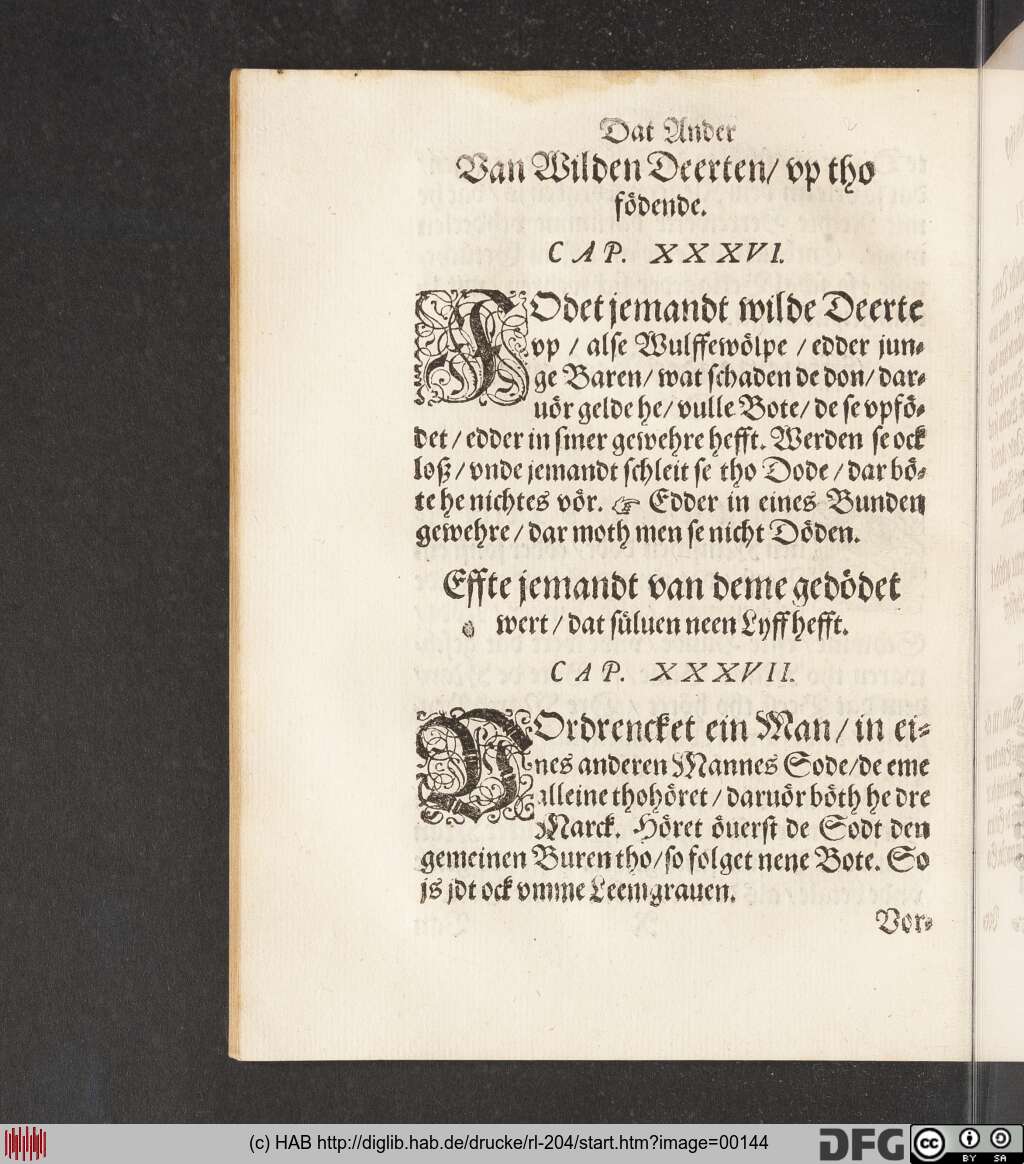 Dat Ander
Van Wilden Deerten/ vp tho
födende.
CAP. XXXVI.
FOdet jemandt wilde Deerte
vp / alse Wulffewölpe / edder jun-
ge Baren/ wat schaden de don/ dar-
uör gelde he/ vulle Bote/ de se vpfö-
det / edder in siner gewehre hefft. Werden se ock
loß / vnde jemandt schleit se tho Dode / dar bö-
te he nichtes vör. ☞ Edder in eines Bunden
gewehre / dar moth men se nicht Döden.
Effte jemandt van deme gedödet
wert / dat süluen neen Lyff hefft.
CAP. XXXVII.
VOrdrencket ein Man / in ei-
nes anderen Mannes Sode/de eme
alleine thohöret / daruör böth he dre
Marck. Höret öuerst de Sodt den
gemeinen Buren tho/ so folget nene Bote. So
js jdt ock vmme Leemgrauen.
Vor-
(c) HAB http://diglib.hab.de/drucke/rl-204/start.htm?image=00144
DFG
cc
BY SA